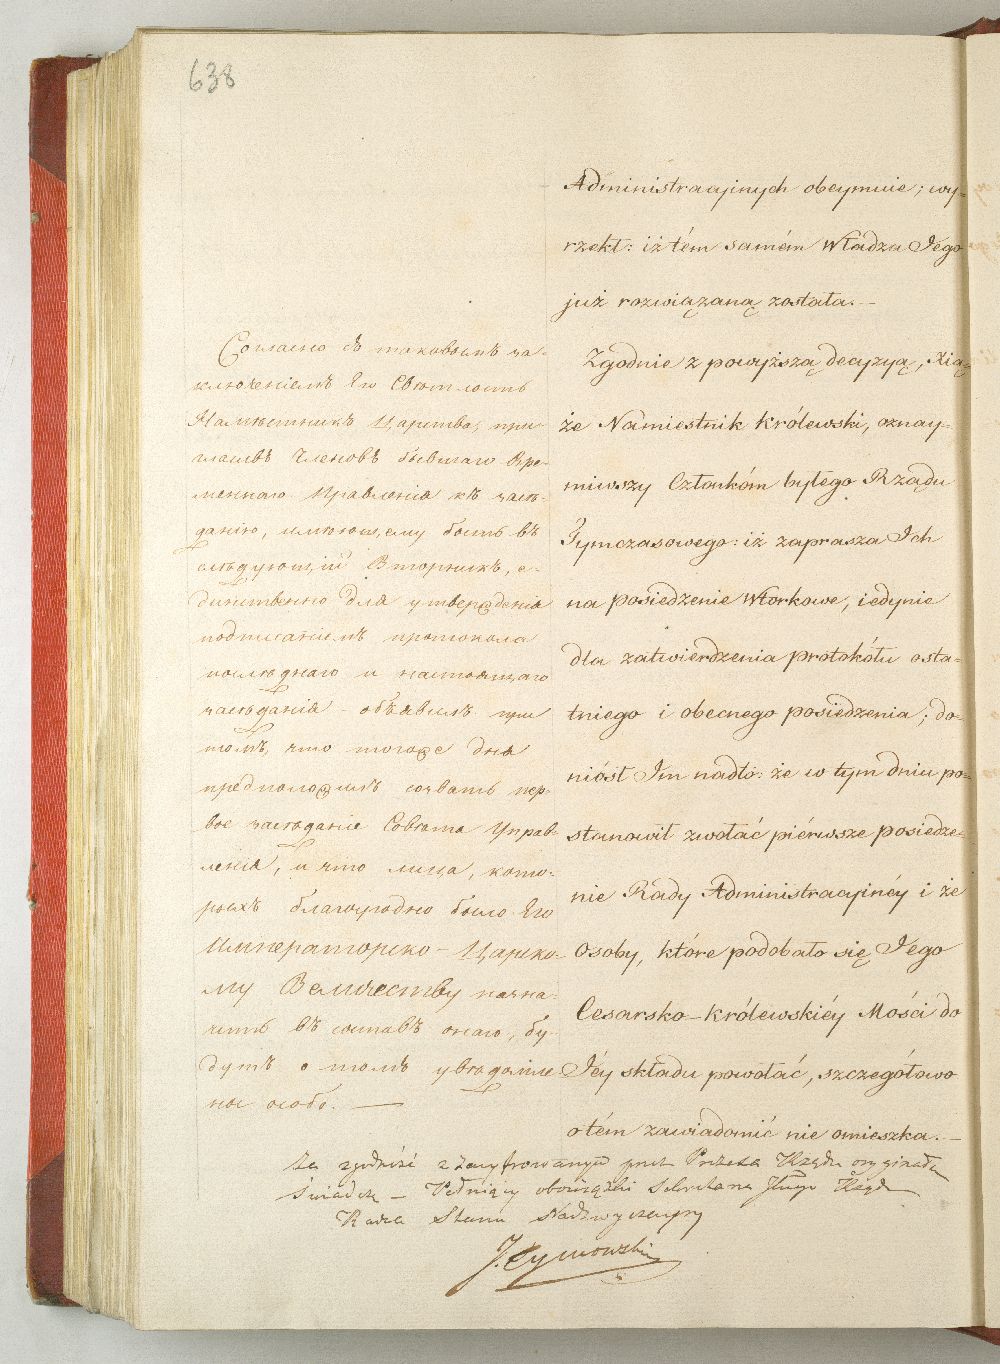 638
Согласно съ таковымъ за-
ключеніемъ Его Свѣтлость
Намѣстникъ Царства, при-
гласивъ Членовъ бывшаго Вре-
меннаго Правленія къ засѣ-
данію, имѣющему быть въ
слѣдующій Вторникъ, е-
динственно для утвержденія
подписаніемъ протокола
послѣдняго и настоящаго
засѣданія – объявилъ при
томъ, что тогоже дня
предположилъ созвать пер-
вое засѣданіе Совѣта Управ-
ленія, и что лица, кото-
рыхъ благоугодно было Его
Императорско-Царско-
му Величеству назна-
чить въ составъ онаго, бу-
дутъ о томъ увѣдомле-
ны особо. —
Administracyjnych obeymuie; wy-
rzekł: iż tém samém Władza Jego
już rozwiązaną została. —
Zgodnie z powyższą decyzyą, Xią-
że Namiestnik Królewski, oznay-
miwszy Członkóm byłego Rządu
Tymczasowego: iż zaprasza Ich
na posiedzenie Wtorkowe, iedynie
dla zatwierdzenia protokółu osta-
tniego i obecnego posiedzenia; do-
niósł Im nadto: że w tym dniu po-
stanowił zwołać piérwsze posiedze-
nie Rady Administracyjnéy i że
osoby, które podobało się Jego
Cesarsko-Królewskiéy Mości do
Jéy składu powołać, szczegółowo
o tém zawiadomić nie omieszka. —
Za zgodność z zacyfrowanym przez Prezesa Rządu oryginałem
świadczę — Pełniący obowiązki Sekretarza Jlnego Rządu
Radca Stanu Nadzwyczajny
J. Tymowski